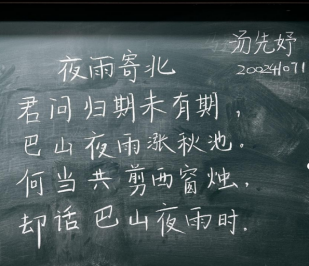 汤先妤
夜雨寄北
君问归期未有期，
巴山夜雨涨秋池。
何当共剪西窗烛，
却话巴山夜雨时.